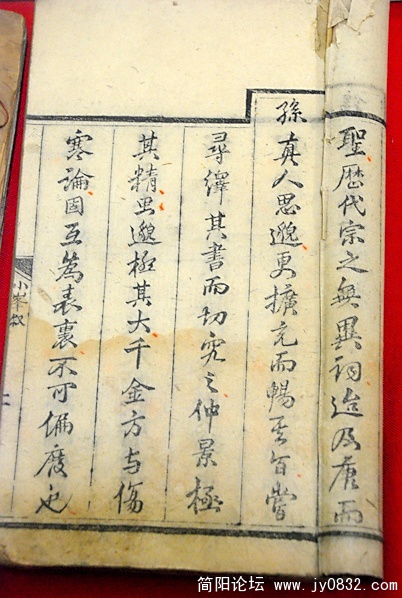 聖歷代宗之無異詞迨及唐而
孫真人思邈更擴充而暢其旨嘗
尋繹其書而切究之仲景極
其精思邈極其大千金方与傷
寒論固互為表裏不可偏廢也
小峯
简阳论坛 www.jy0832.com